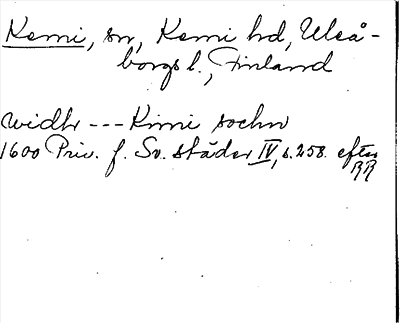 Kemi, sn, Kemi hd, Uleå-
borgs l., Finland
widh --- Kimi sochn
1600 Priv. f. Sv. städer IV, s. 258. efter
RR